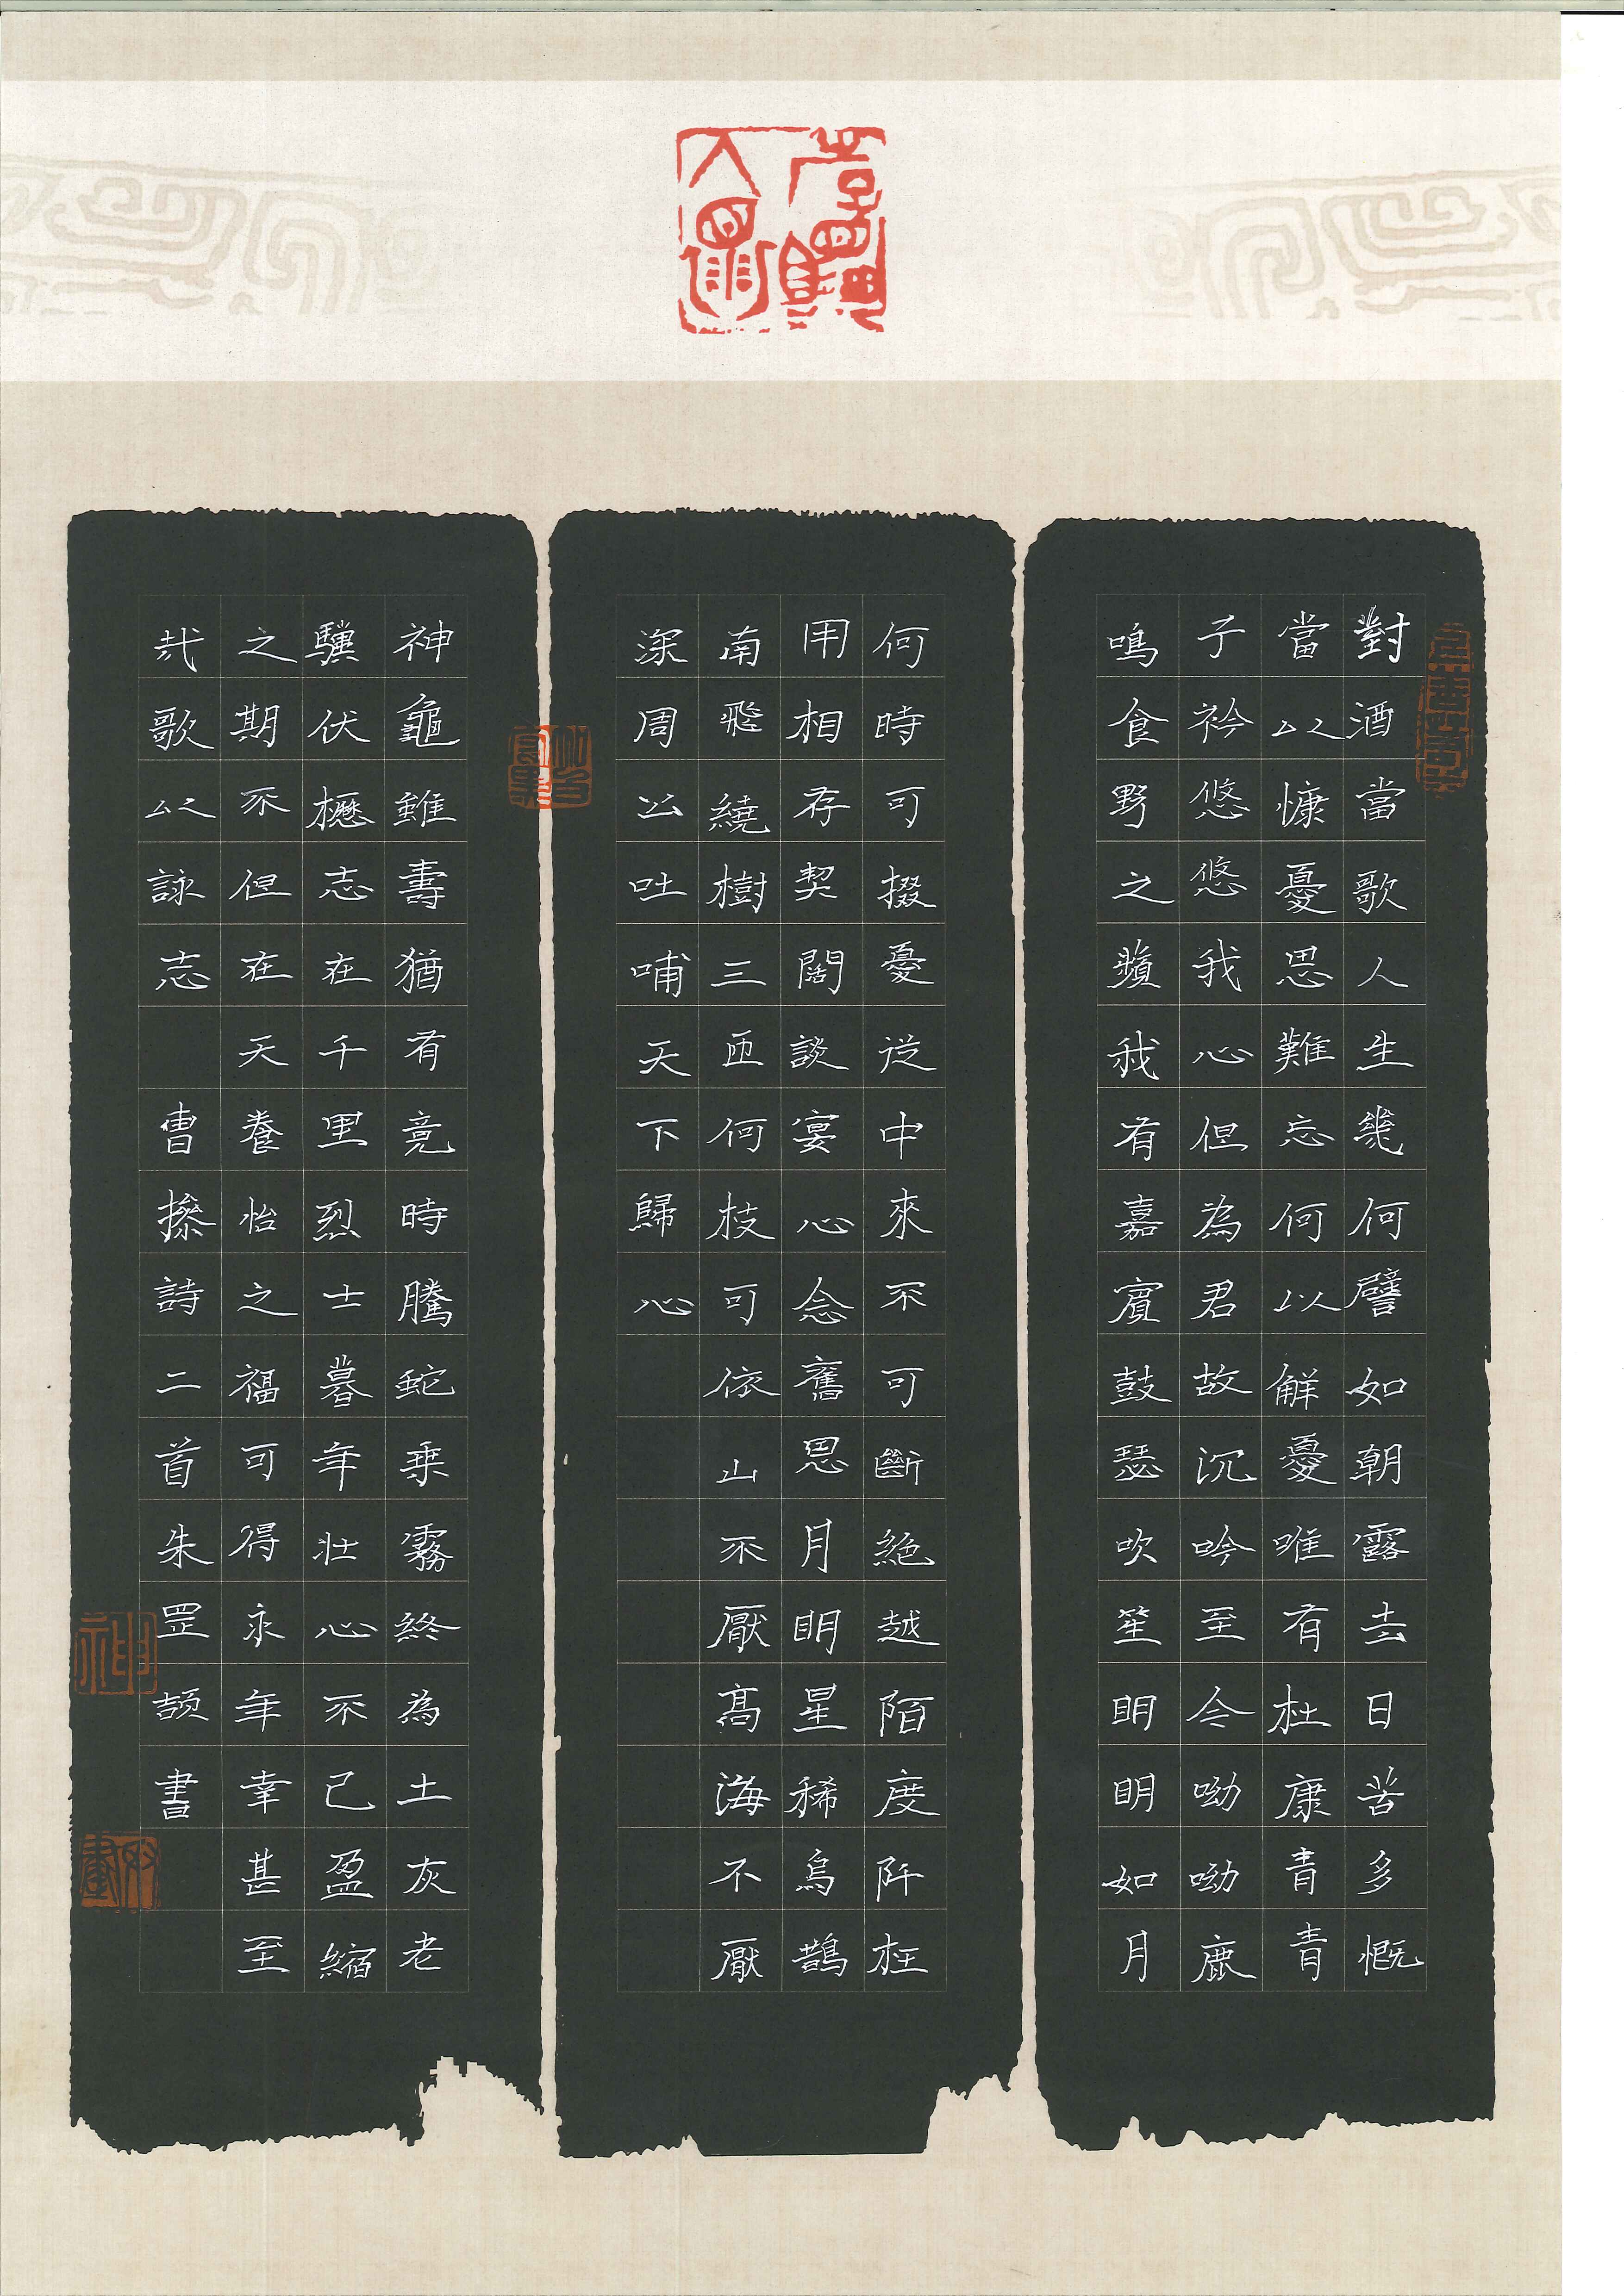 對酒當歌人生幾何譬如朝露去日苦多慨
當以慷憂思難忘何以解憂唯有杜康青青
子衿悠悠我心但為君故沉吟至今呦呦鹿
鳴食野之蘋我有嘉賓鼓瑟吹笙明明如月
何時可掇憂從中來不可斷絕越陌度阡枉
用相存契闊談宴心念舊恩月明星稀烏鵲
南飛繞樹三匝何枝可依山不厭高海不厭
深周公吐哺天下歸心
神龜雖壽猶有竟時騰蛇乘霧終為土灰老
驥伏櫪志在千里烈士暮年壯心不已盈縮
之期不但在天養怡之福可得永年幸甚至
哉歌以詠志 曹操詩二首朱罡頡書